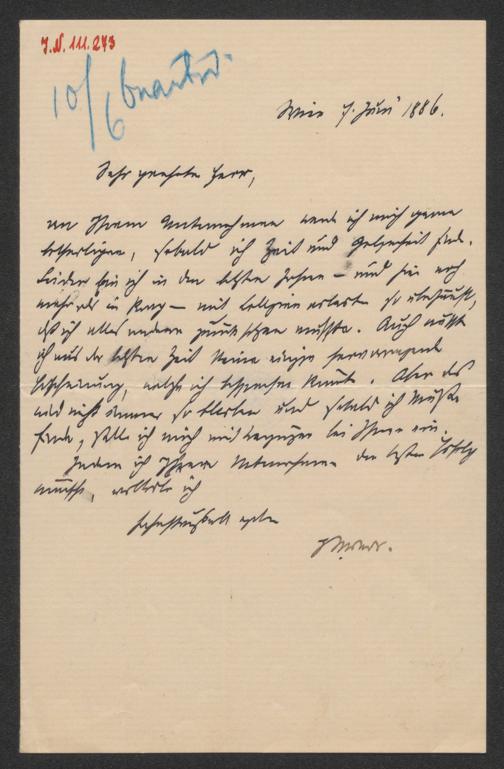 J.N. 111.273
10/6 beantw.
Wien 7. Juni 1886.
Sehr geehrter Herr,
an Ihrem Unternehmen werde ich mich gerne
betheiligen, sobald ich Zeit und Gelegenheit finde.
Leider bin ich in den letzten Jahren – und hier noch
mehr als in Prag – mit Collegien arbeiten so überhäuft,
daß ich alles andere zurücksetzen mußte. Auch wüßte
ich aus der letzten Zeit keine einzige hervorragende
Erscheinung, welche ich besprechen könnte. Aber das
wird nicht immer so bleiben und sobald ich Muße
finde, stelle ich mich mit Vergnügen bei Ihnen ein.
Indem ich Ihrem Unternehmen den besten Erfolg
wünsche, verbleibe ich
hochachtungsvoll ergeben